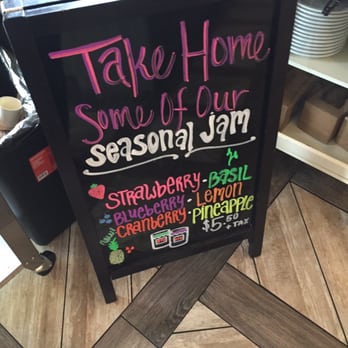 Take Home
Some Of Our
Seasonal Jam
Strawberry - Basil
Blueberry - Lemon
Cranberry - Pineapple
$5.50
+ tax